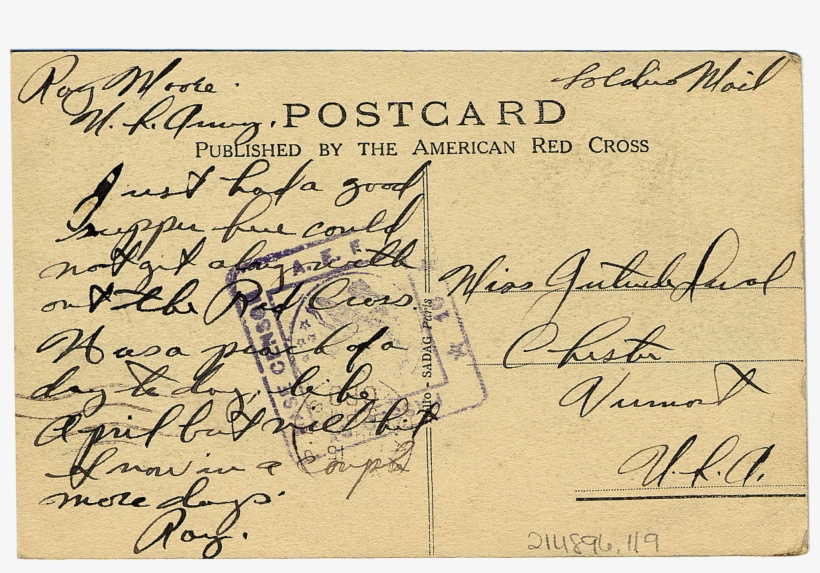 Ray Moore.
U.S. Army.
Soldiers Mail
POSTCARD
PUBLISHED BY THE AMERICAN RED CROSS
Just had a good
supper here could
not get along with
out the Red Cross.
Was a peach of a
day to day, like
April but will
now in a couple
more days.
Ray.
Miss Gertrude
Chester
Vermont
U.S.A.
A. E. F.
BASE CENSOR
SADAG Paris
214896.119